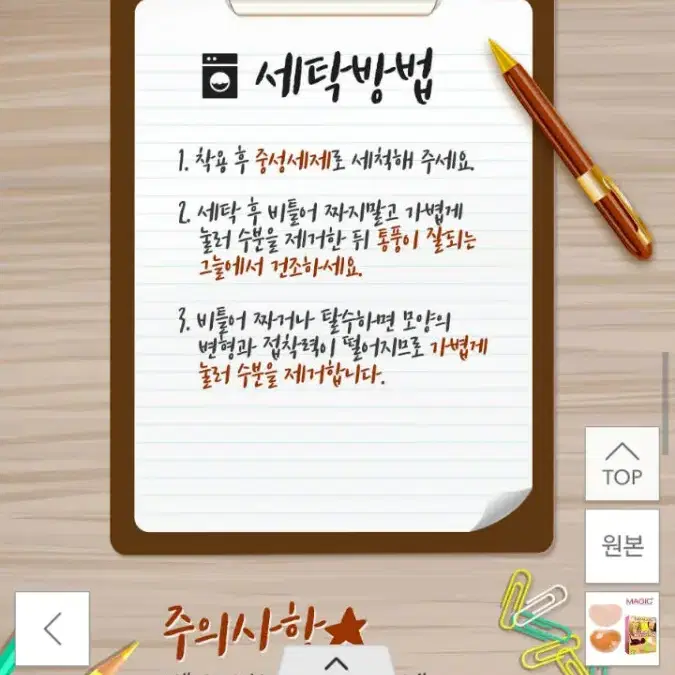 세탁방법
1. 착용 후 중성세제로 세척해 주세요.
2. 세탁 후 비틀어 짜지말고 가볍게
눌러 수분을 제거한 뒤 통풍이 잘되는
그늘에서 건조하세요.
3. 비틀어 짜거나 탈수하면 모양의
변형과 접착력이 떨어지므로 가볍게
눌러 수분을 제거합니다.
TOP
원본
MAGIC
주의사항